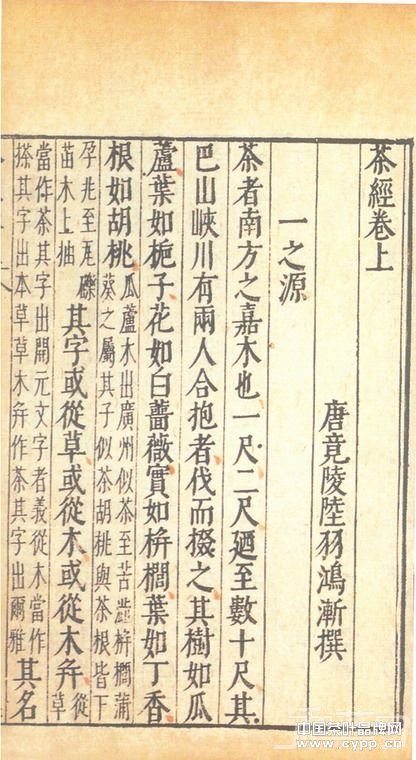 茶經卷上
唐竟陵陸羽鴻漸撰
一之源
茶者南方之嘉木也一尺二尺廼至數十尺其
巴山峽川有兩人合抱者伐而掇之其樹如瓜
蘆葉如梔子花如白薔薇實如栟櫚葉如丁香
根如胡桃瓜蘆木出廣州似茶至苦澁栟櫚蒲葵之屬其子似茶胡桃與茶根皆下
孕兆至瓦礫苗木上抽其字或從草或從木或從木并從草
當作茶其字出開元文字者義從木當作搽其字出本草草木并作茶其字出爾雅其名
中国茶叶品牌网
www.cypp.cn